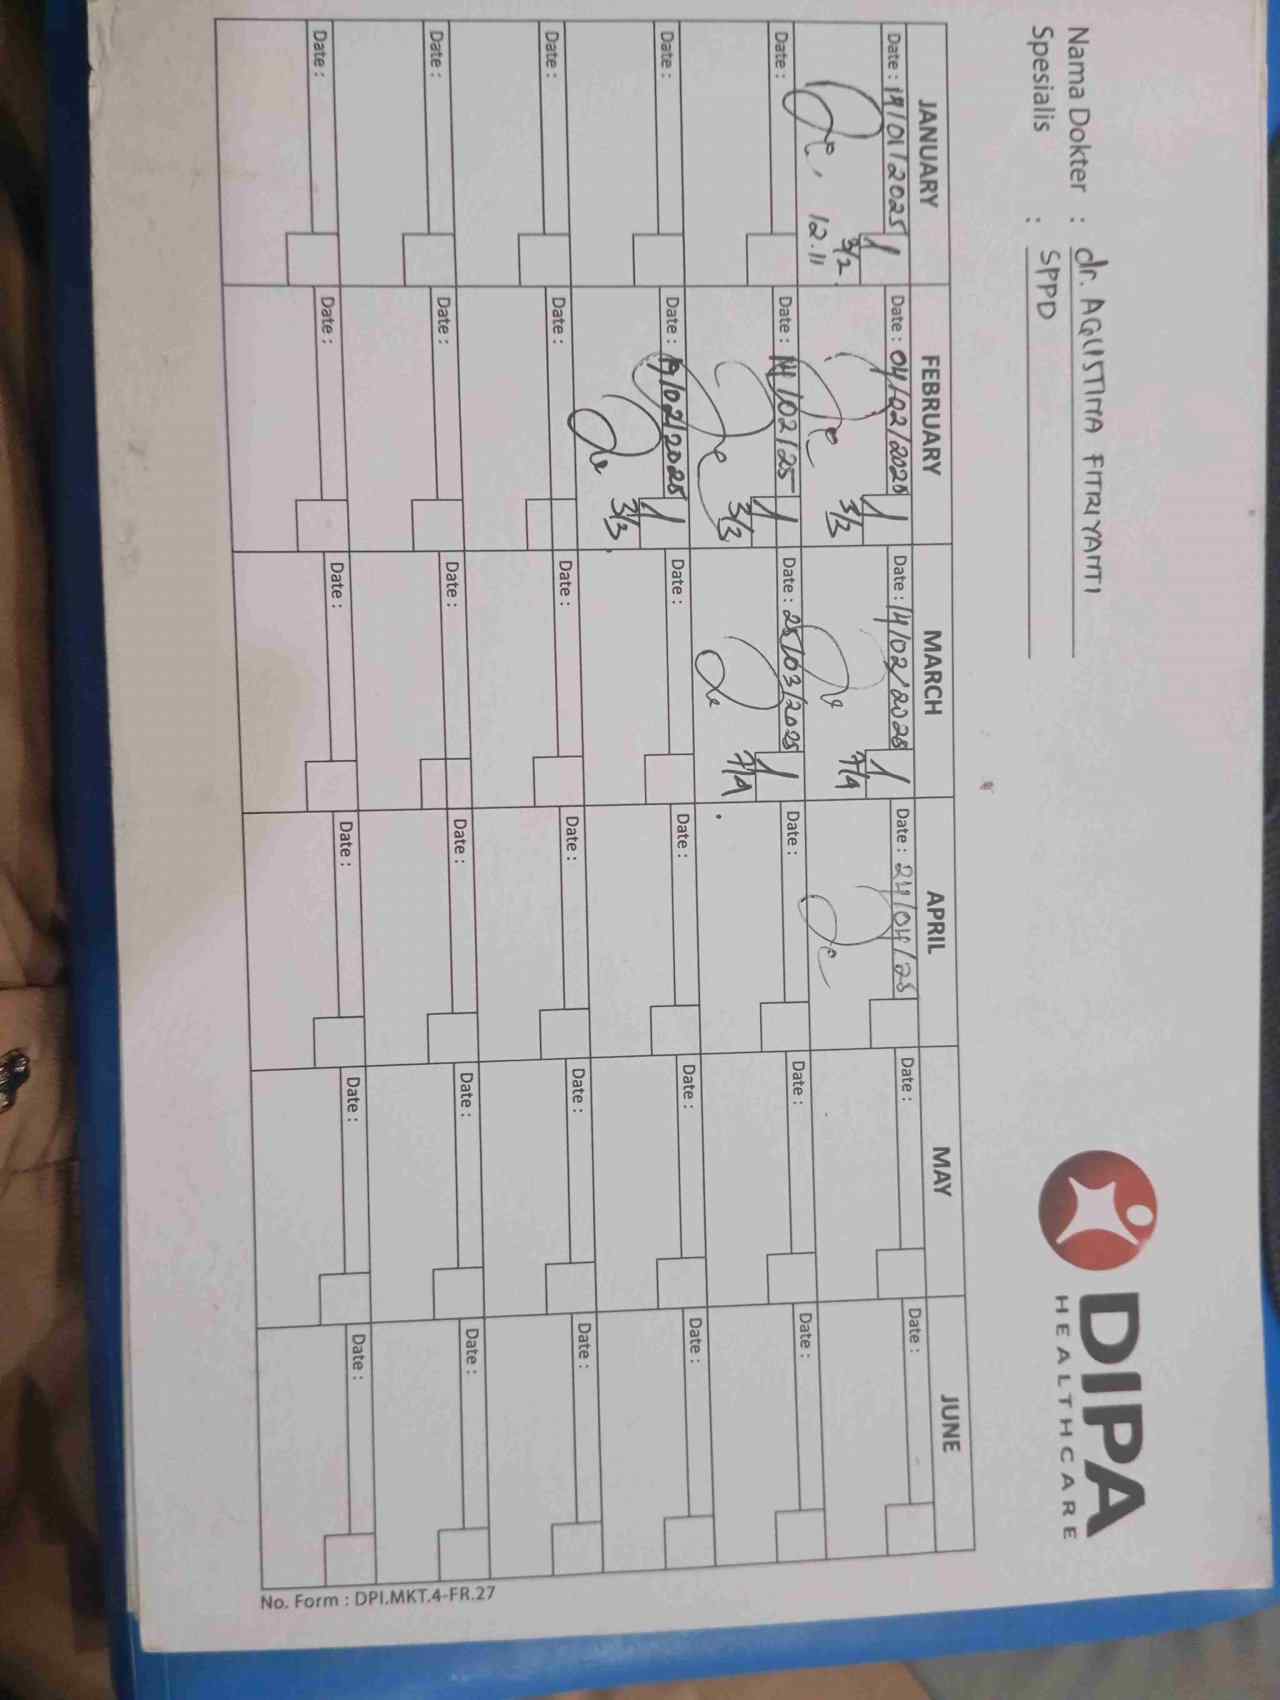 Nama Dokter : dr. AGUSTINA FITRIYANTI
Spesialis : SPPD
DIPA
HEALTHCARE
JANUARY FEBRUARY MARCH APRIL MAY JUNE
Date : 17/01/2025 1 Date : 04/02/2025 1 Date : 14/02/2025 1 Date : 24/04/25 Date : Date :
3/2 3/3 7/4
12.11
Date : Date : 14/02/25 1 Date : 25/03/2025 1 Date : Date : Date :
3/3 7/4
Date : Date : 19/02/2025 1 Date : Date : Date : Date :
3/3
Date : Date : Date : Date : Date : Date :
Date : Date : Date : Date : Date : Date :
Date : Date : Date : Date : Date : Date :
No. Form : DPI.MKT.4-FR.27